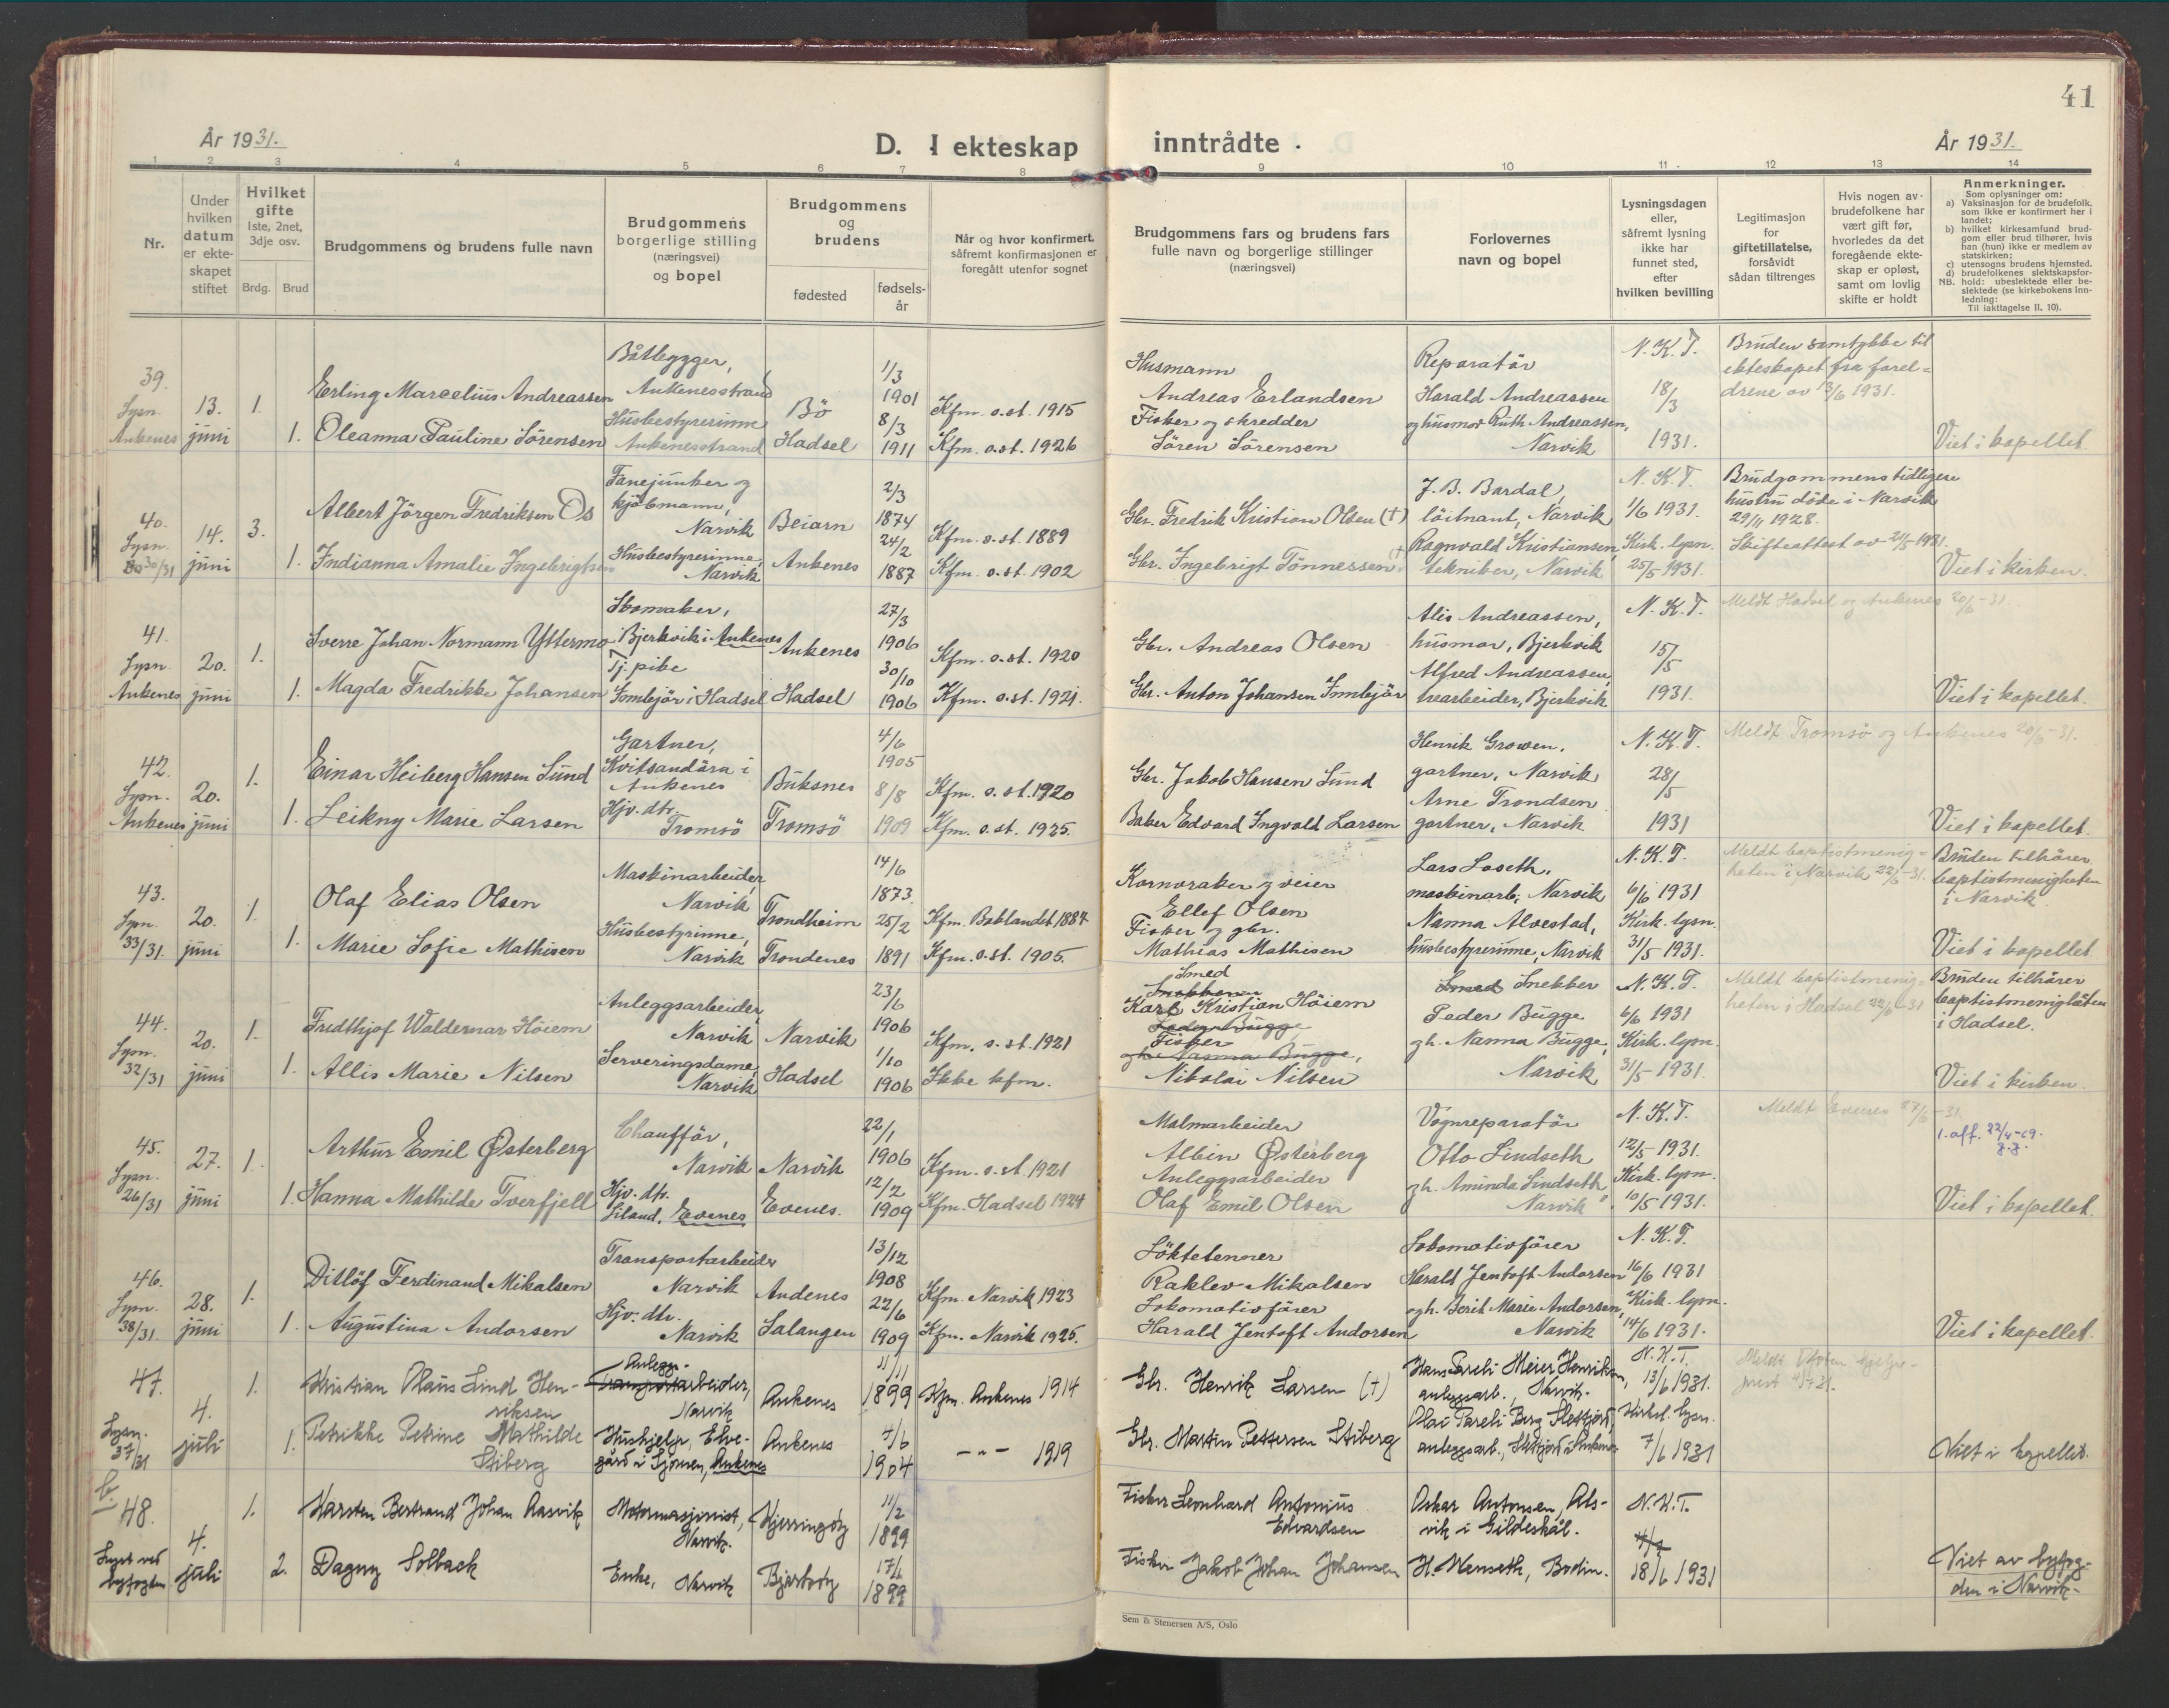 41
År 1931.
D. I ekteskap inntrådte.
År 1931.
1 2 3 4 5 6 7 8 9 10 11 12 13 14
Nr.
Under hvilken datum er ekteskapet stiftet
Hvilket gifte
1ste, 2net, 3dje osv.
Brdg. Brud
Brudgommens og brudens fulle navn
Brudgommens borgerlige stilling (næringsvei) og bopel
Brudgommens og brudens
fødested
fødselsår
Når og hvor konfirmert, såfremt konfirmasjonen er foregått utenfor sognet
Brudgommens fars og brudens fars fulle navn og borgerlige stillinger (næringsvei)
Forlovernes navn og bopel
Lysningsdagen eller, såfremt lysning ikke har funnet sted, efter hvilken bevilling
Legitimasjon for giftetillatelse, forsåvidt sådan tiltrenges
Hvis nogen av brudefolkene har vært gift før, hvorledes da det foregående ekteskap er opløst, samt om lovlig skifte er holdt
Anmerkninger.
Som oplysninger om:
a) Vaksinasjon for de brudefolk, som ikke er konfirmert her i landet;
b) hvilket kirkesamfund brudgom eller brud tilhører, hvis han (hun) ikke er medlem av statskirken;
c) utensogns brudens hjemsted.
d) brudefolkenes slektskapsforhold: ubeslektede eller beslektede (se kirkebokens Innledning:
NB. Til iakttagelse II. 10).
39.
Lysn. Ankenes
13. juni
1.
Erling Marcelius Andreassen
Båtbygger, Ankenesstrand
Bö
1/3 1901
Kfm. o.st. 1915
Husmann
Andreas Erlandsen
Reparatör
Harald Andreassen
N.K.T.
18/3 1931.
Bruden samtykke til ekteskapet fra foreldrene av 13/6 1931.
1. Oleanna Pauline Sörensen
Husbestyrerinne Ankenesstrand
Hadsel
8/3 1911
Kfm. o.st. 1926
Fisker og skredder
Sören Sörensen
og husmor Ruth Andreassen, Narvik
Viet i kapellet.
40.
Lysn. 30/31
14. juni
3.
Albert Jörgen Fredriksen Os
Fanejunker og kjöbmann, Narvik
Beiarn
2/3 1874
Kfm. o.st. 1889
Gbr. Fredrik Kristian Olsen (†)
J. B. Bardal, löitnant, Narvik
N.K.T.
1/6 1931.
Brudgommens tidligere hustru döde i Narvik 29/11 1928.
Skifteattest av 21/5 1931.
1. Indianna Amalie Ingebrigtsen
Husbestyrerinne, Narvik
Ankenes
24/2 1887
Kfm. o.st. 1902
Gbr. Ingebrigt Tönnessen (†)
Ragnvald Kristiansen, tekniker, Narvik
Kirk. lysn. 25/5 1931.
Viet i kirken.
41.
Lysn. Ankenes
20. juni
1.
Sverre Johan Normann Yttermo
Skomaker, Bjerkvik i Ankenes
Ankenes
27/3 1906
Kfm. o.st. 1920
Gbr. Andreas Olsen
Alis Andreassen, husmor, Bjerkvik
N.K.T.
15/5 1931.
Meldt Hadsel og Ankenes 20/6-31.
1. Magda Fredrikke Johansen
Tj.pike
Innlejör i Hadsel
Hadsel
30/10 1906
Kfm. o.st. 1921.
Gbr. Anton Johansen Innlejör
Alfred Andreassen, trearbeider, Bjerkvik
Viet i kapellet.
42.
Lysn. Ankenes
20. juni
1.
Einar Heiberg Hansen Sund
Gartner, Kvitsandöra i Ankenes
Buksnes
4/6 1905
Kfm. o.st. 1920
Gbr. Jakob Hansen Sund
Henrik Growen, gartner, Narvik
N.K.T.
28/5 1931
Meldt Tromsö og Ankenes 20/6-31.
1. Leikny Marie Larsen
Hjv. dtr. Tromsö
Tromsö
8/8 1909
Kfm. o.st. 1925.
Baker Edvard Ingvald Larsen
Arne Trondsen gartner, Narvik
Viet i kapellet.
43.
Lysn. 33/31
20. juni
1.
Olaf Elias Olsen
Maskinarbeider, Narvik
Trondheim
14/6 1873.
Kfm. Baklandet 1887
Kornvraker og veier
Ellef Olsen
Lars Loseth, maskinarb, Narvik
N.K.T.
6/6 1931
Meldt baptistmenigheten i Narvik 22/6-31.
Bruden tilhörer baptistmenigheten i Narvik
1. Marie Sofie Mathisen
Husbestyrinne, Narvik
Trondenes
25/2 1891
Kfm. o.st. 1905.
Fisker og gbr.
Mathias Mathisen
Nanna Alvestad, husbestyrerinne, Narvik
Kirk. lysn. 31/5 1931.
Viet i kapellet
44.
Lysn. 32/31
20. juni
1.
Fredthjof Waldemar Höiem
Anleggsarbeider, Narvik
Narvik
23/6 1906
Kfm. o.st. 1921
Smed
Snekkeren
Karl Kristian Höiem
Peder Bugge
Smed Snekker
Peder Bugge
N.K.T.
6/6 1931
Meldt baptistmenigheten i Hadsel 22/6-31
Bruden tilhörer baptistmenigheten i Hadsel.
1. Allis Marie Nilsen
Serveringsdame, Narvik
Hadsel
1/10 1906
Ikke kfm.
Fisker
gh. Nanna Bugge,
Nikolai Nilsen
gh. Nanna Bugge, Narvik
Kirk. lysn. 31/5 1931.
Viet i kirken.
45.
Lysn. 26/31
27. juni
1.
Arthur Emil Østerberg
Chaufför, Narvik
Narvik
22/1 1906
Kfm. o.st. 1921
Malmarbeider
Albin Østerberg
Vognreparatör
Otto Lindseth
N.K.T.
12/5 1931.
Meldt Evenes 27/6-31.
1. aff. 22/4-69.
1. Hanna Mathilde Tverfjell
Hjv. dtr. Liland, Evenes
Evenes.
12/2 1909
Kfm. Hadsel 1924
Anleggsarbeider
Olaf Emil Olsen
gh. Aminda Lindseth Narvik
Kirk. lysn. 10/5 1931.
Viet i kapellet.
46.
Lysn. 38/31
28. juni
1.
Ditlöf Ferdinand Mikalsen
Transportarbeider Narvik
Andenes
13/12 1908
Kfm. Narvik 1923
Löktetenner
Raklev Mikalsen
Lokomotivförer
Harald Jentoft Andorsen
N.K.T.
16/6 1931
1. Augustina Andorsen
Hjv. dtr. Narvik
Salangen
22/6 1909
Kfm. Narvik 1925.
Lokomotivförer
Harald Jentoft Andorsen
og h. Berit Marie Andorsen, Narvik
Kirk. lysn. 14/6 1931.
Viet i kapellet.
47.
Lysn. 37/31
4. juli
1.
Kristian Olaus Lind Henriksen
Anlegg-
Transportarbeider, Narvik
Ankenes
11/11 1899
Kfm. Ankenes 1914
Gbr. Henrik Larsen (†)
Hans Pareli Meier Henriksen, anleggsarb., Narvik.
N.K.T.
13/6 1931.
1. Petrikke Petrine Mathilde Stiberg
Hushjelp, Elvegård i Skjomen, Ankenes
Ankenes
7/6 1904
— " — 1919
Gbr. Martin Pettersen Stiberg
Olai Pareli Berg Slettjord, anleggsarb., Slettjord i Ankenes
Kirkel. lysn. 7/6 1931
Viet i kapellet.
b.
48.
Lyst ved byfogden
4. juli
1.
Karsten Bertrand Johan Aasvik
Motormaskinist, Narvik.
Kjerringöy
11/2 1899
Fisker Leonhard Antonius Edvardsen
Oskar Antonsen, Alsvik i Gildeskål.
N.K.T.
18/6 1931
2. Dagny Solback
Enke, Narvik
Bjarköy
17/1 1899
Fisker Jakob Johan Johansen
H. Wenseth, Bodin.
Viet av byfogden i Narvik.
Sem & Stenersen A/S, Oslo